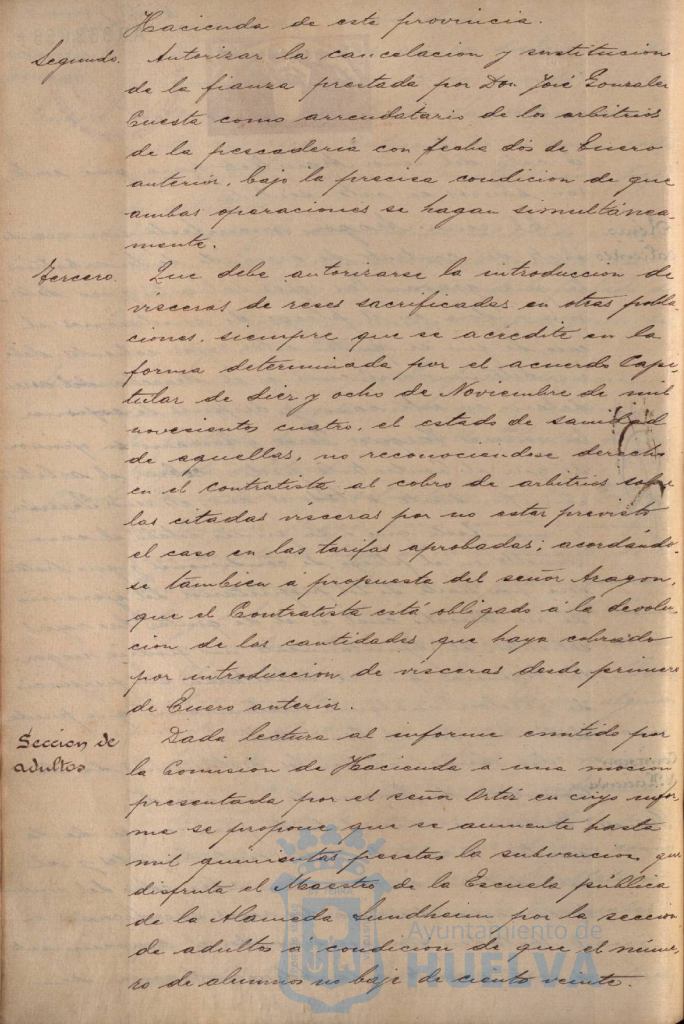 Hacienda de este provincia.
Segundo. Autorizar la cancelacion y sustitucion
de la fianza prestada por Don José Gonzalez
Cuesta como arrendatario de los arbitrios
de la pescaderia con fecha dos de Enero
anterior, bajo la precisa condicion de que
ambas operaciones se hagan simultánea-
mente.
Tercero. Que debe autorizarse la introduccion de
visceras de reses sacrificadas en otras pobla-
ciones, siempre que se acredite en la
forma determinada por el acuerdo Capi-
tular de diez y ocho de Noviembre de mil
novecientos cuatro, el estado de sanidad
de aquellas, no reconociendose derecho
en el contratista al cobro de arbitrios sobre
las citadas visceras por no estar previsto
el caso en las tarifas aprobadas; acordándo-
se tambien á propuesta del señor Aragon,
que el Contratista está obligado á la devolu-
cion de las cantidades que haya cobrado
por introduccion de visceras desde primero
de Enero anterior.
Seccion de
adultos
Dada lectura al informe emitido por
la Comision de Hacienda á una mocion
presentada por el señor Ortiz en cuyo infor-
me se propone que se aumente hasta
mil quinientas pesetas la subvencion que
disfruta el Maestro de la Escuela pública
de la Alameda Sundheim por la seccion
de adultos a condicion de que el núme-
ro de alumnos no baje de ciento veinte.
Ayuntamiento de
HUELVA